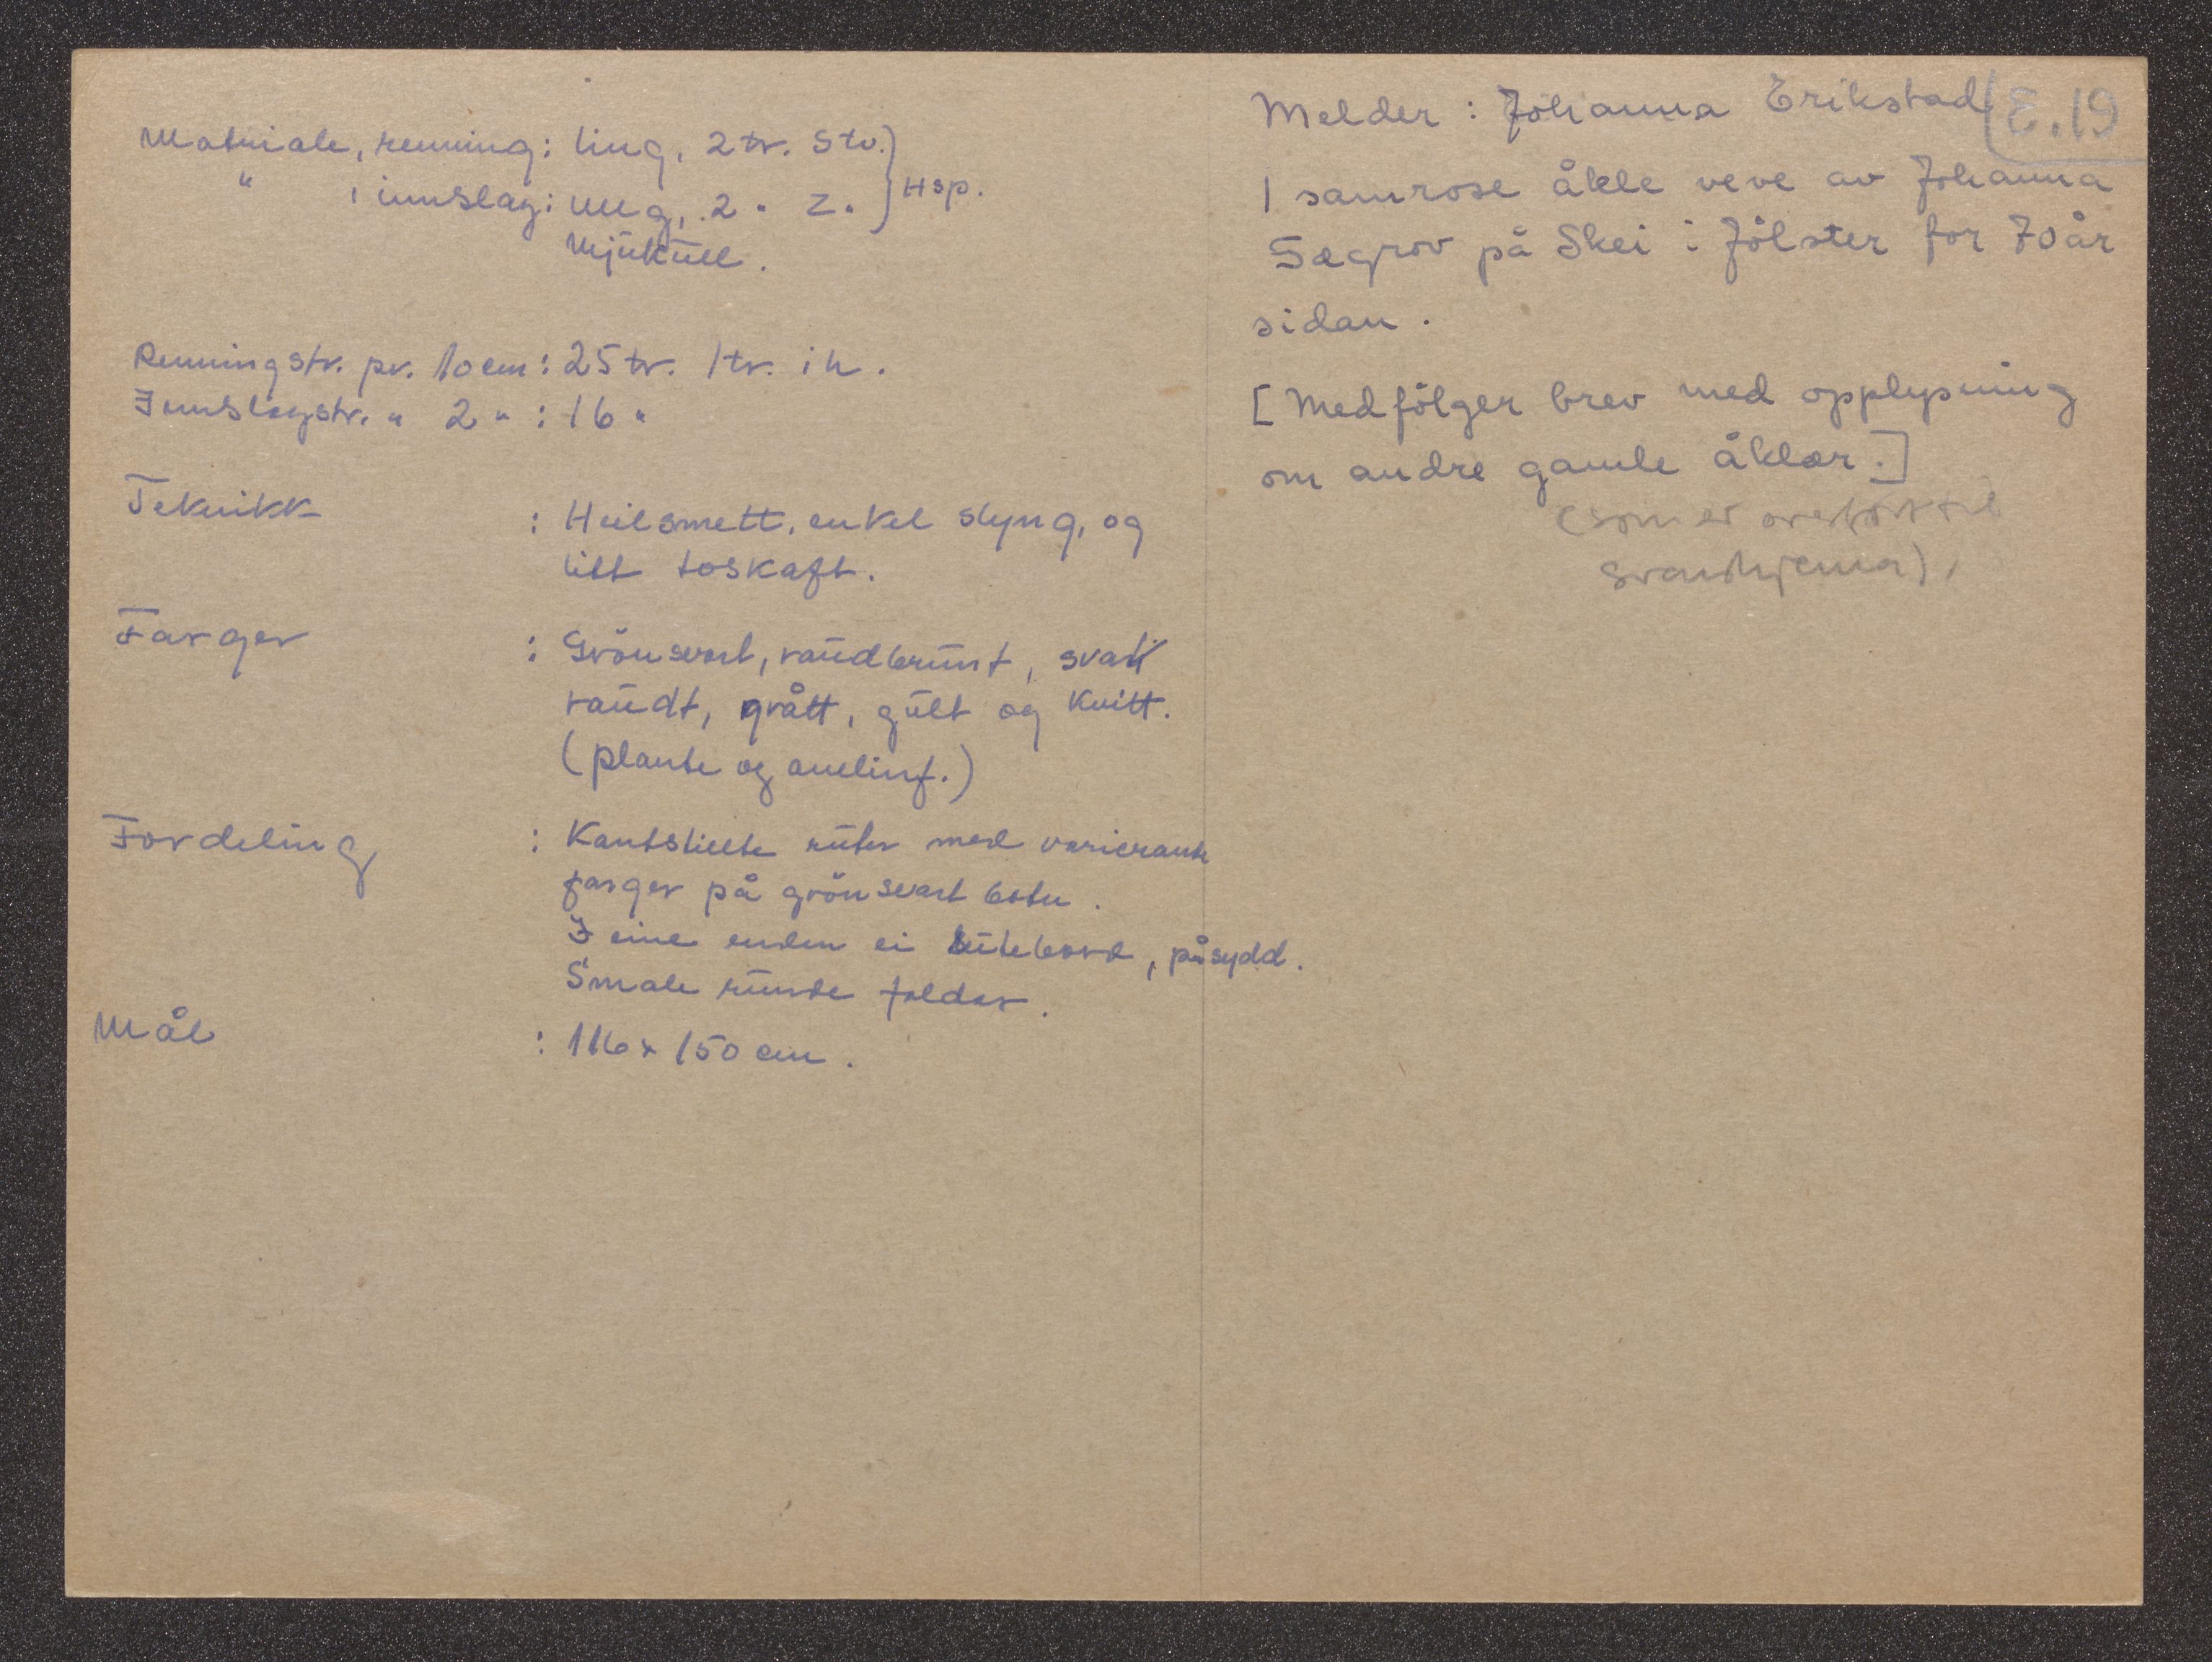 Materiale, renning: ling, 2 tr. S tv. } Hsp.
" , innslag: ullg, 2 " Z "
Mjukull.
Renningstr. pr. 10 cm: 25 tr. 1 tr. i h.
Innslagstr. " 2 " : 16 "
Teknikk : Heilsmett, enkel slyng, og
litt toskaft.
Farger : Grönsvart, raudbrunt, svakt
raudt, grått, gult og kvitt.
(plante og anelinf.)
Fordeling : Kantstillte ruter med varierande
farger på grönsvart botn.
I eine enden ei rutebord, påsydd.
Smale runde faldar.
Mål : 116 x 150 cm.
Melder : Johanna Erikstad E.19
1 samrose åkle veve av Johanna
Sægrov på Skei i Jölster for 70 år
sidan.
[Medfölger brev med opplysning
om andre gamle åklær.]
(som er overfört til
svarskjema).